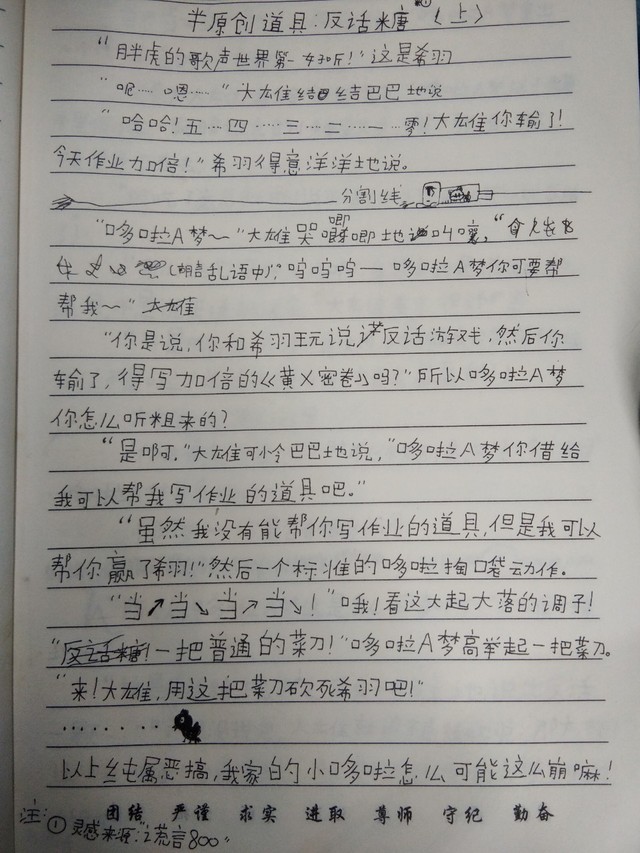 半原创道具:反话糖(上) ①
“胖虎的歌声世界第一好听!”这是希羽
“呃……嗯……”大雄结结巴巴地说
“哈哈!五…四……三…二…一…零!大雄你输了!
今天作业加倍!”希羽得意洋洋地说。
分割线
“哆啦A梦~”大雄哭唧唧地叫嚷,“
(胡言乱语中);呜呜呜——哆啦A梦你可要帮
帮我~”
“你是说,你和希羽玩说反话游戏,然后你
输了,得写加倍的《黄X密卷》吗?”所以哆啦A梦
你怎么听粗来的?
“是啊。”大雄可怜巴巴地说,“哆啦A梦你借给
我可以帮我写作业的道具吧。”
“虽然我没有能帮你写作业的道具,但是我可以
帮你赢了希羽!”然后一个标准的哆啦掏口袋动作。
“当↗当↘当↗当↘!”哦!看这大起大落的调子!
“反话糖!一把普通的菜刀!”哆啦A梦高举起一把菜刀。
“来!大雄,用这把菜刀砍死希羽吧!”
········
以上纯属恶搞,我家的小哆啦怎么可能这么崩嘛!
团结 严谨 求实 进取 尊师 守纪 勤奋
注:①灵感来源:“谎言800”